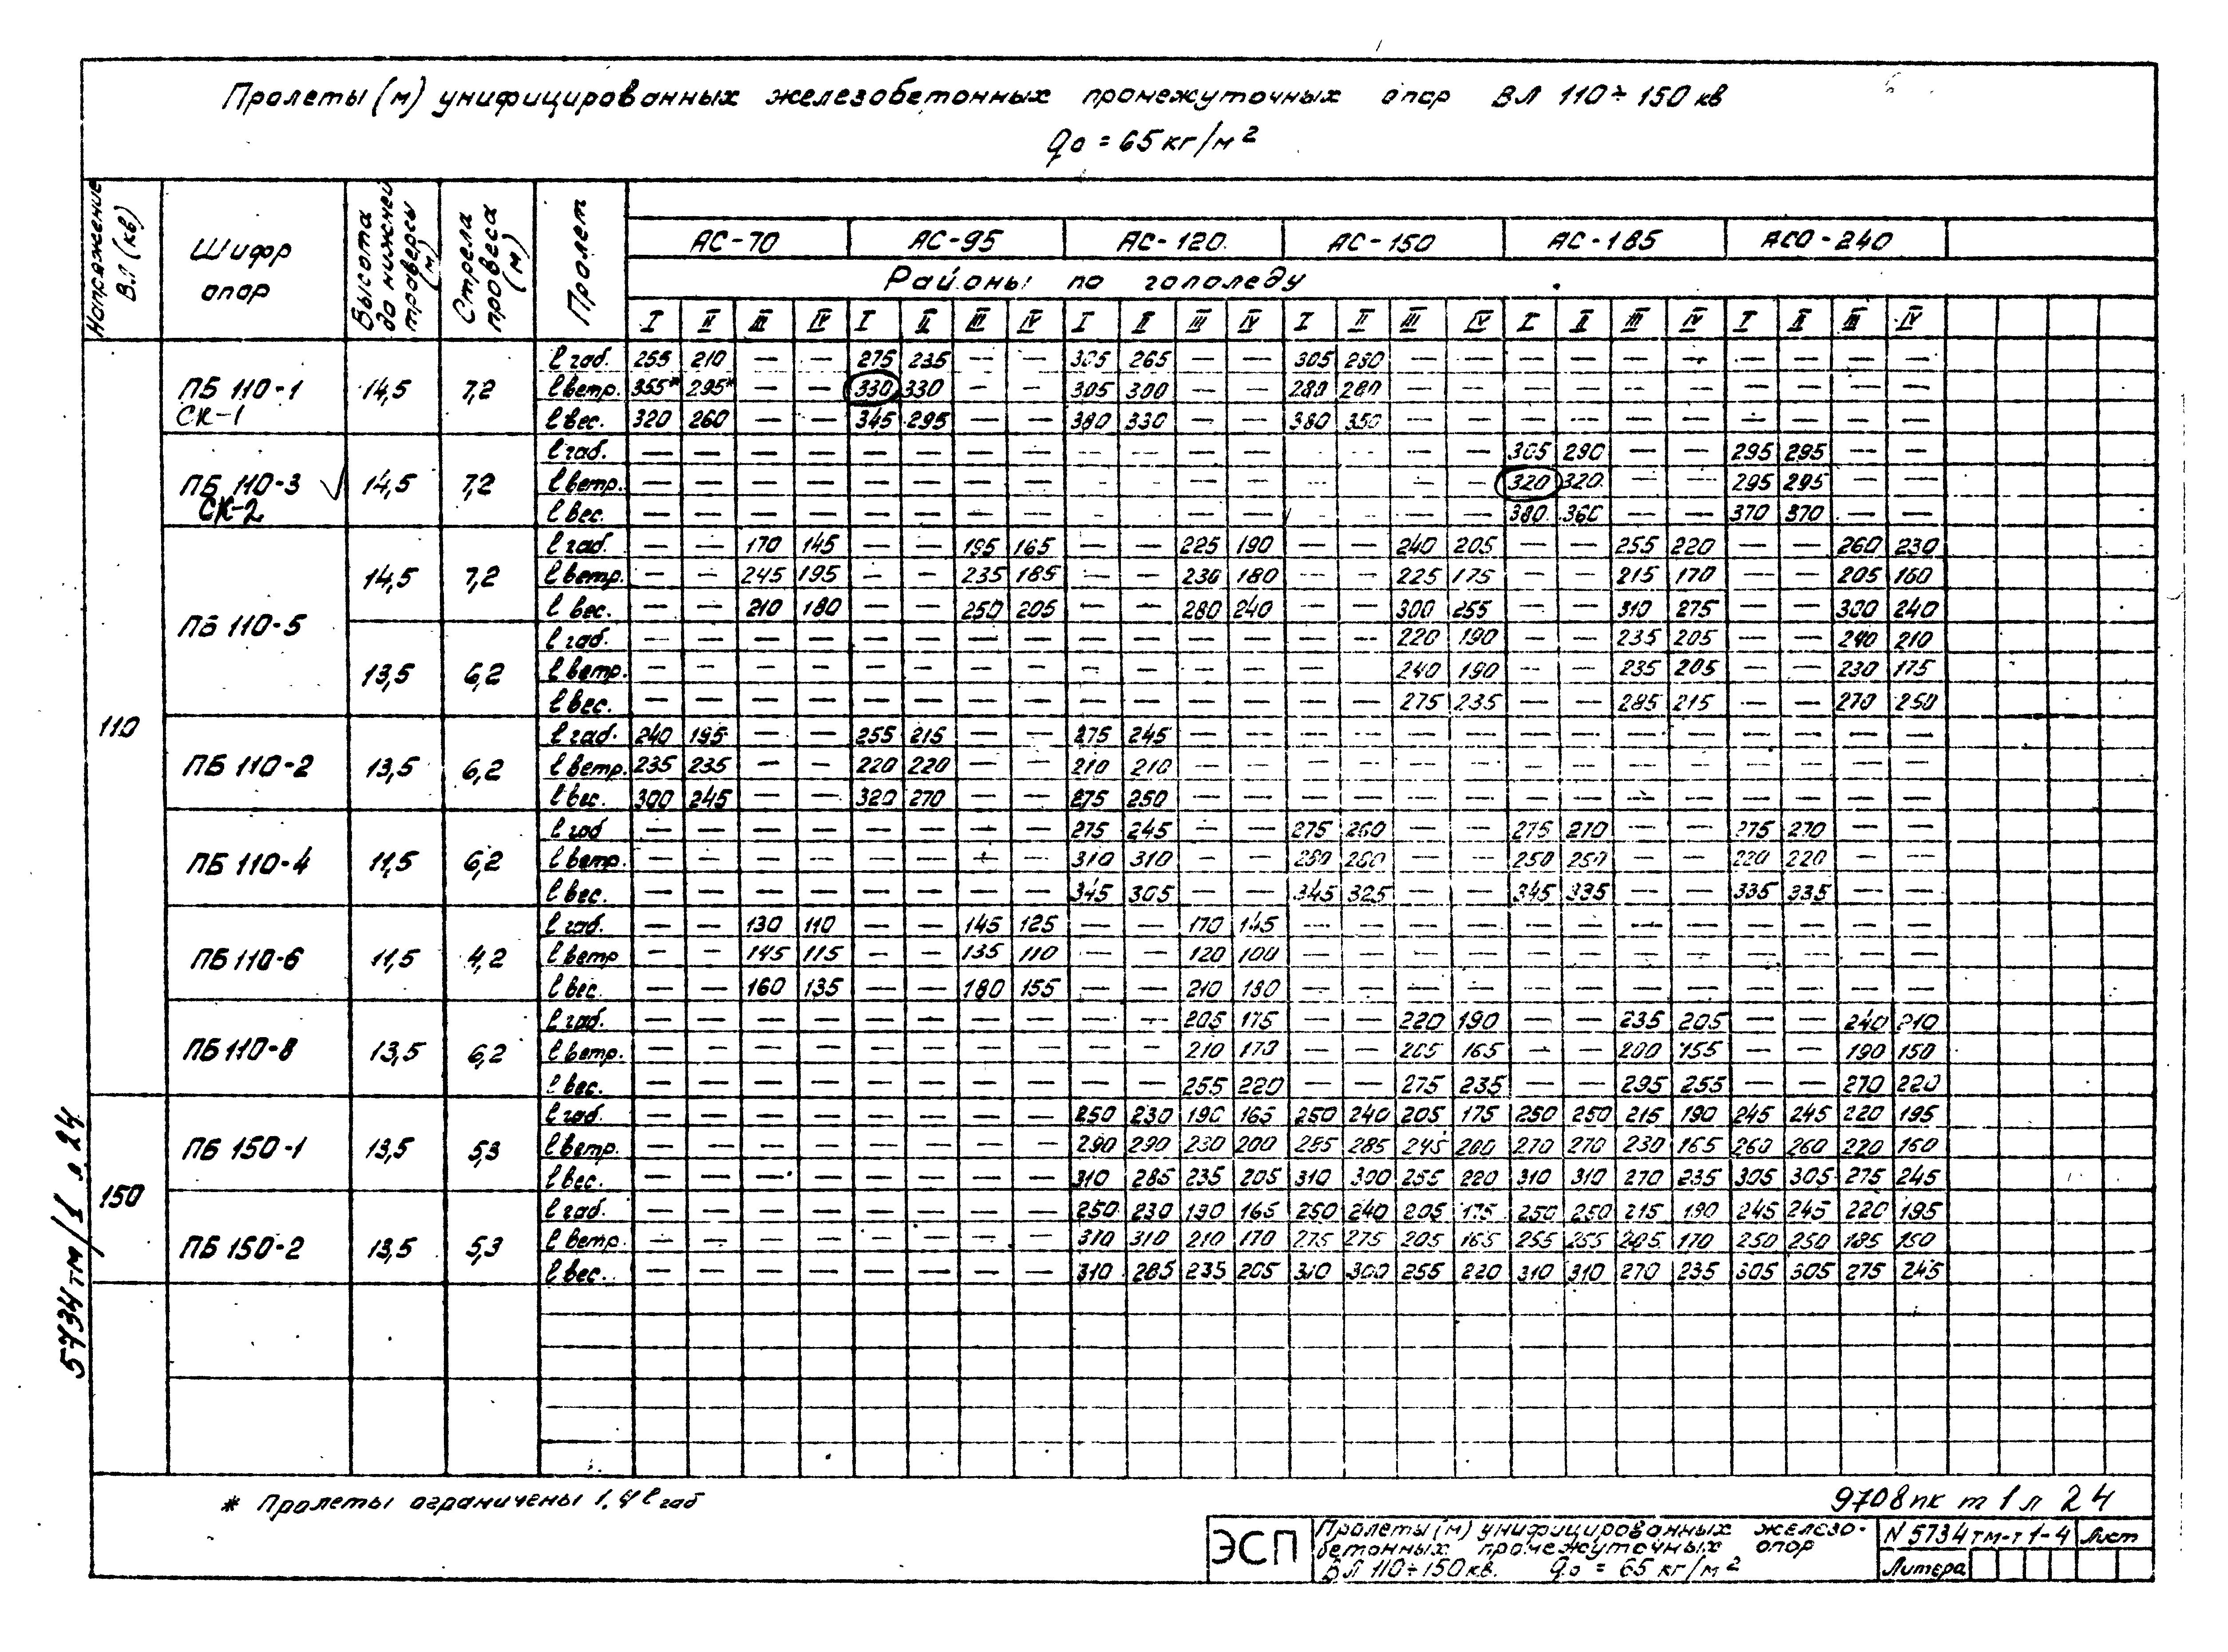 Пролеты (м) унифицированных железобетонных промежуточных опор ВЛ 110÷150 кв
q₀ = 65 кг/м²
Напряжение ВЛ (кв) | Шифр опор | Высота до нижней траверсы (м) | Стрела провеса (м) | Пролет | АС-70 | АС-95 | АС-120. | АС-150 | АС-185 | АСО-240
Районы по гололеду
I II III IV I II III IV I II III IV I II III IV I II III IV I II III IV
110
ПБ 110-1 СК-1 14,5 7,2
l габ. 255 210 — — 275 235 — — 305 265 — — 305 280 — — — — — — — — — —
l ветр. 355* 295* — — 330 330 — — 305 300 — — 280 280 — — — — — — — — — —
l вес. 320 260 — — 345 295 — — 380 330 — — 380 350 — — — — — — — — — —
ПБ 110-3 СК-2 14,5 7,2
l габ. — — — — — — — — — — — — — — — — 305 290 — — 295 295 — —
l ветр. — — — — — — — — — — — — — — — — 320 320 — — 295 295 — —
l вес. — — — — — — — — — — — — — — — — 380 360 — — 370 370 — —
ПБ 110-5 14,5 7,2
l габ. — — 170 145 — — 195 165 — — 225 190 — — 240 205 — — 255 220 — — 260 230
l ветр. — — 245 195 — — 235 185 — — 230 180 — — 225 175 — — 215 170 — — 205 160
l вес. — — 210 180 — — 250 205 — — 280 240 — — 300 255 — — 310 275 — — 300 240
13,5 6,2
l габ. — — — — — — — — — — — — — — 220 190 — — 235 205 — — 240 210
l ветр. — — — — — — — — — — — — — — 240 190 — — 235 205 — — 230 175
l вес. — — — — — — — — — — — — — — 275 235 — — 285 215 — — 270 250
ПБ 110-2 13,5 6,2
l габ. 240 195 — — 255 215 — — 275 245 — — — — — — — — — — — — — —
l ветр. 235 235 — — 220 220 — — 210 210 — — — — — — — — — — — — — —
l вес. 300 245 — — 320 270 — — 275 250 — — — — — — — — — — — — — —
ПБ 110-4 11,5 6,2
l габ — — — — — — — — 275 245 — — 275 260 — — 275 270 — — 275 270 — —
l ветр. — — — — — — — — 310 310 — — 280 280 — — 250 250 — — 220 220 — —
l вес. — — — — — — — — 345 305 — — 345 325 — — 345 335 — — 335 335 — —
ПБ 110-6 11,5 4,2
l габ. — — 130 110 — — 145 125 — — 170 145 — — — — — — — — — — — —
l ветр — — 145 115 — — 135 110 — — 120 100 — — — — — — — — — — — —
l вес. — — 160 135 — — 180 155 — — 210 180 — — — — — — — — — — — —
ПБ 110-8 13,5 6,2
l габ. — — — — — — — — — — 205 175 — — 220 190 — — 235 205 — — 240 210
l ветр. — — — — — — — — — — 210 170 — — 205 165 — — 200 155 — — 190 150
l вес. — — — — — — — — — — 255 220 — — 275 235 — — 295 255 — — 270 220
150
ПБ 150-1 13,5 5,3
l габ. — — — — — — — — 250 230 190 165 250 240 205 175 250 250 215 190 245 245 220 195
l ветр. — — — — — — — — 290 290 230 200 285 285 245 200 270 270 230 165 260 260 220 160
l вес. — — — — — — — — 310 285 235 205 310 300 255 220 310 310 270 235 305 305 275 245
ПБ 150-2 13,5 5,3
l габ. — — — — — — — — 250 230 190 165 250 240 205 175 250 250 215 190 245 245 220 195
l ветр. — — — — — — — — 310 310 210 170 275 275 205 165 255 255 205 170 250 250 185 150
l вес. — — — — — — — — 310 285 235 205 310 300 255 220 310 310 270 235 305 305 275 245
5734тм/1 л 24
* Пролеты ограничены 1,4 l габ
9708пк т 1 л 24
ЭСП
Пролеты (м) унифицированных железо-
бетонных промежуточных опор
ВЛ 110÷150 кв. q₀ = 65 кг/м²
N 5734тм-т1-4 Лист
Литера